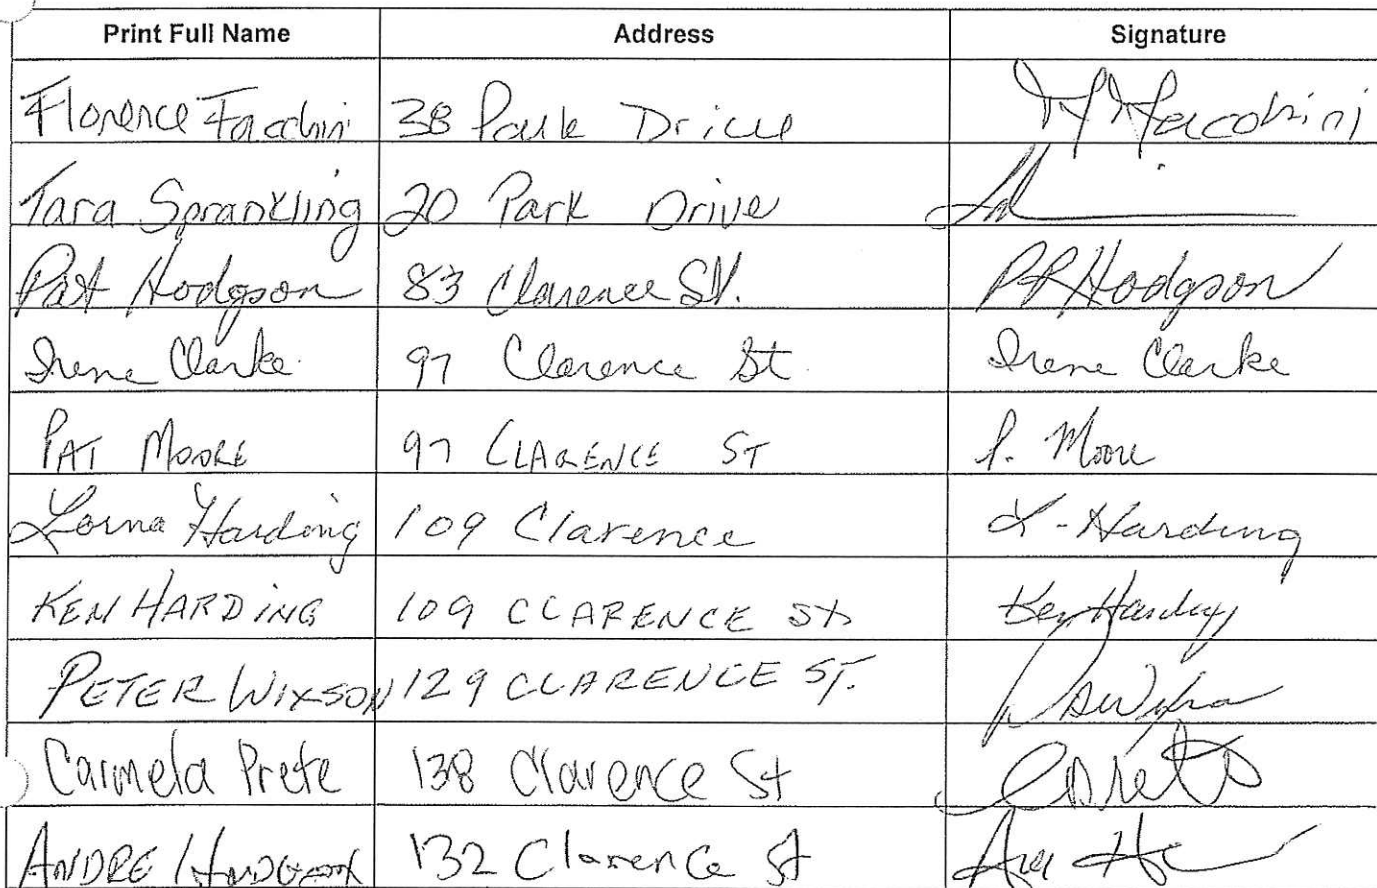 Print Full Name Address Signature
Florence Facchini 38 Park Drive
Tara Sprankling 20 Park Drive
Pat Hodgson 83 Clarence St. PP Hodgson
Irene Clarke 97 Clarence St Irene Clarke
PAT MOORE 97 CLARENCE ST P. Moore
Lorna Harding 109 Clarence L-Harding
KEN HARDING 109 CLARENCE St Ken Harding
PETER WIXSON 129 CLARENCE ST.
Carmela Prete 138 Clarence St
ANDRE 132 Clarence St